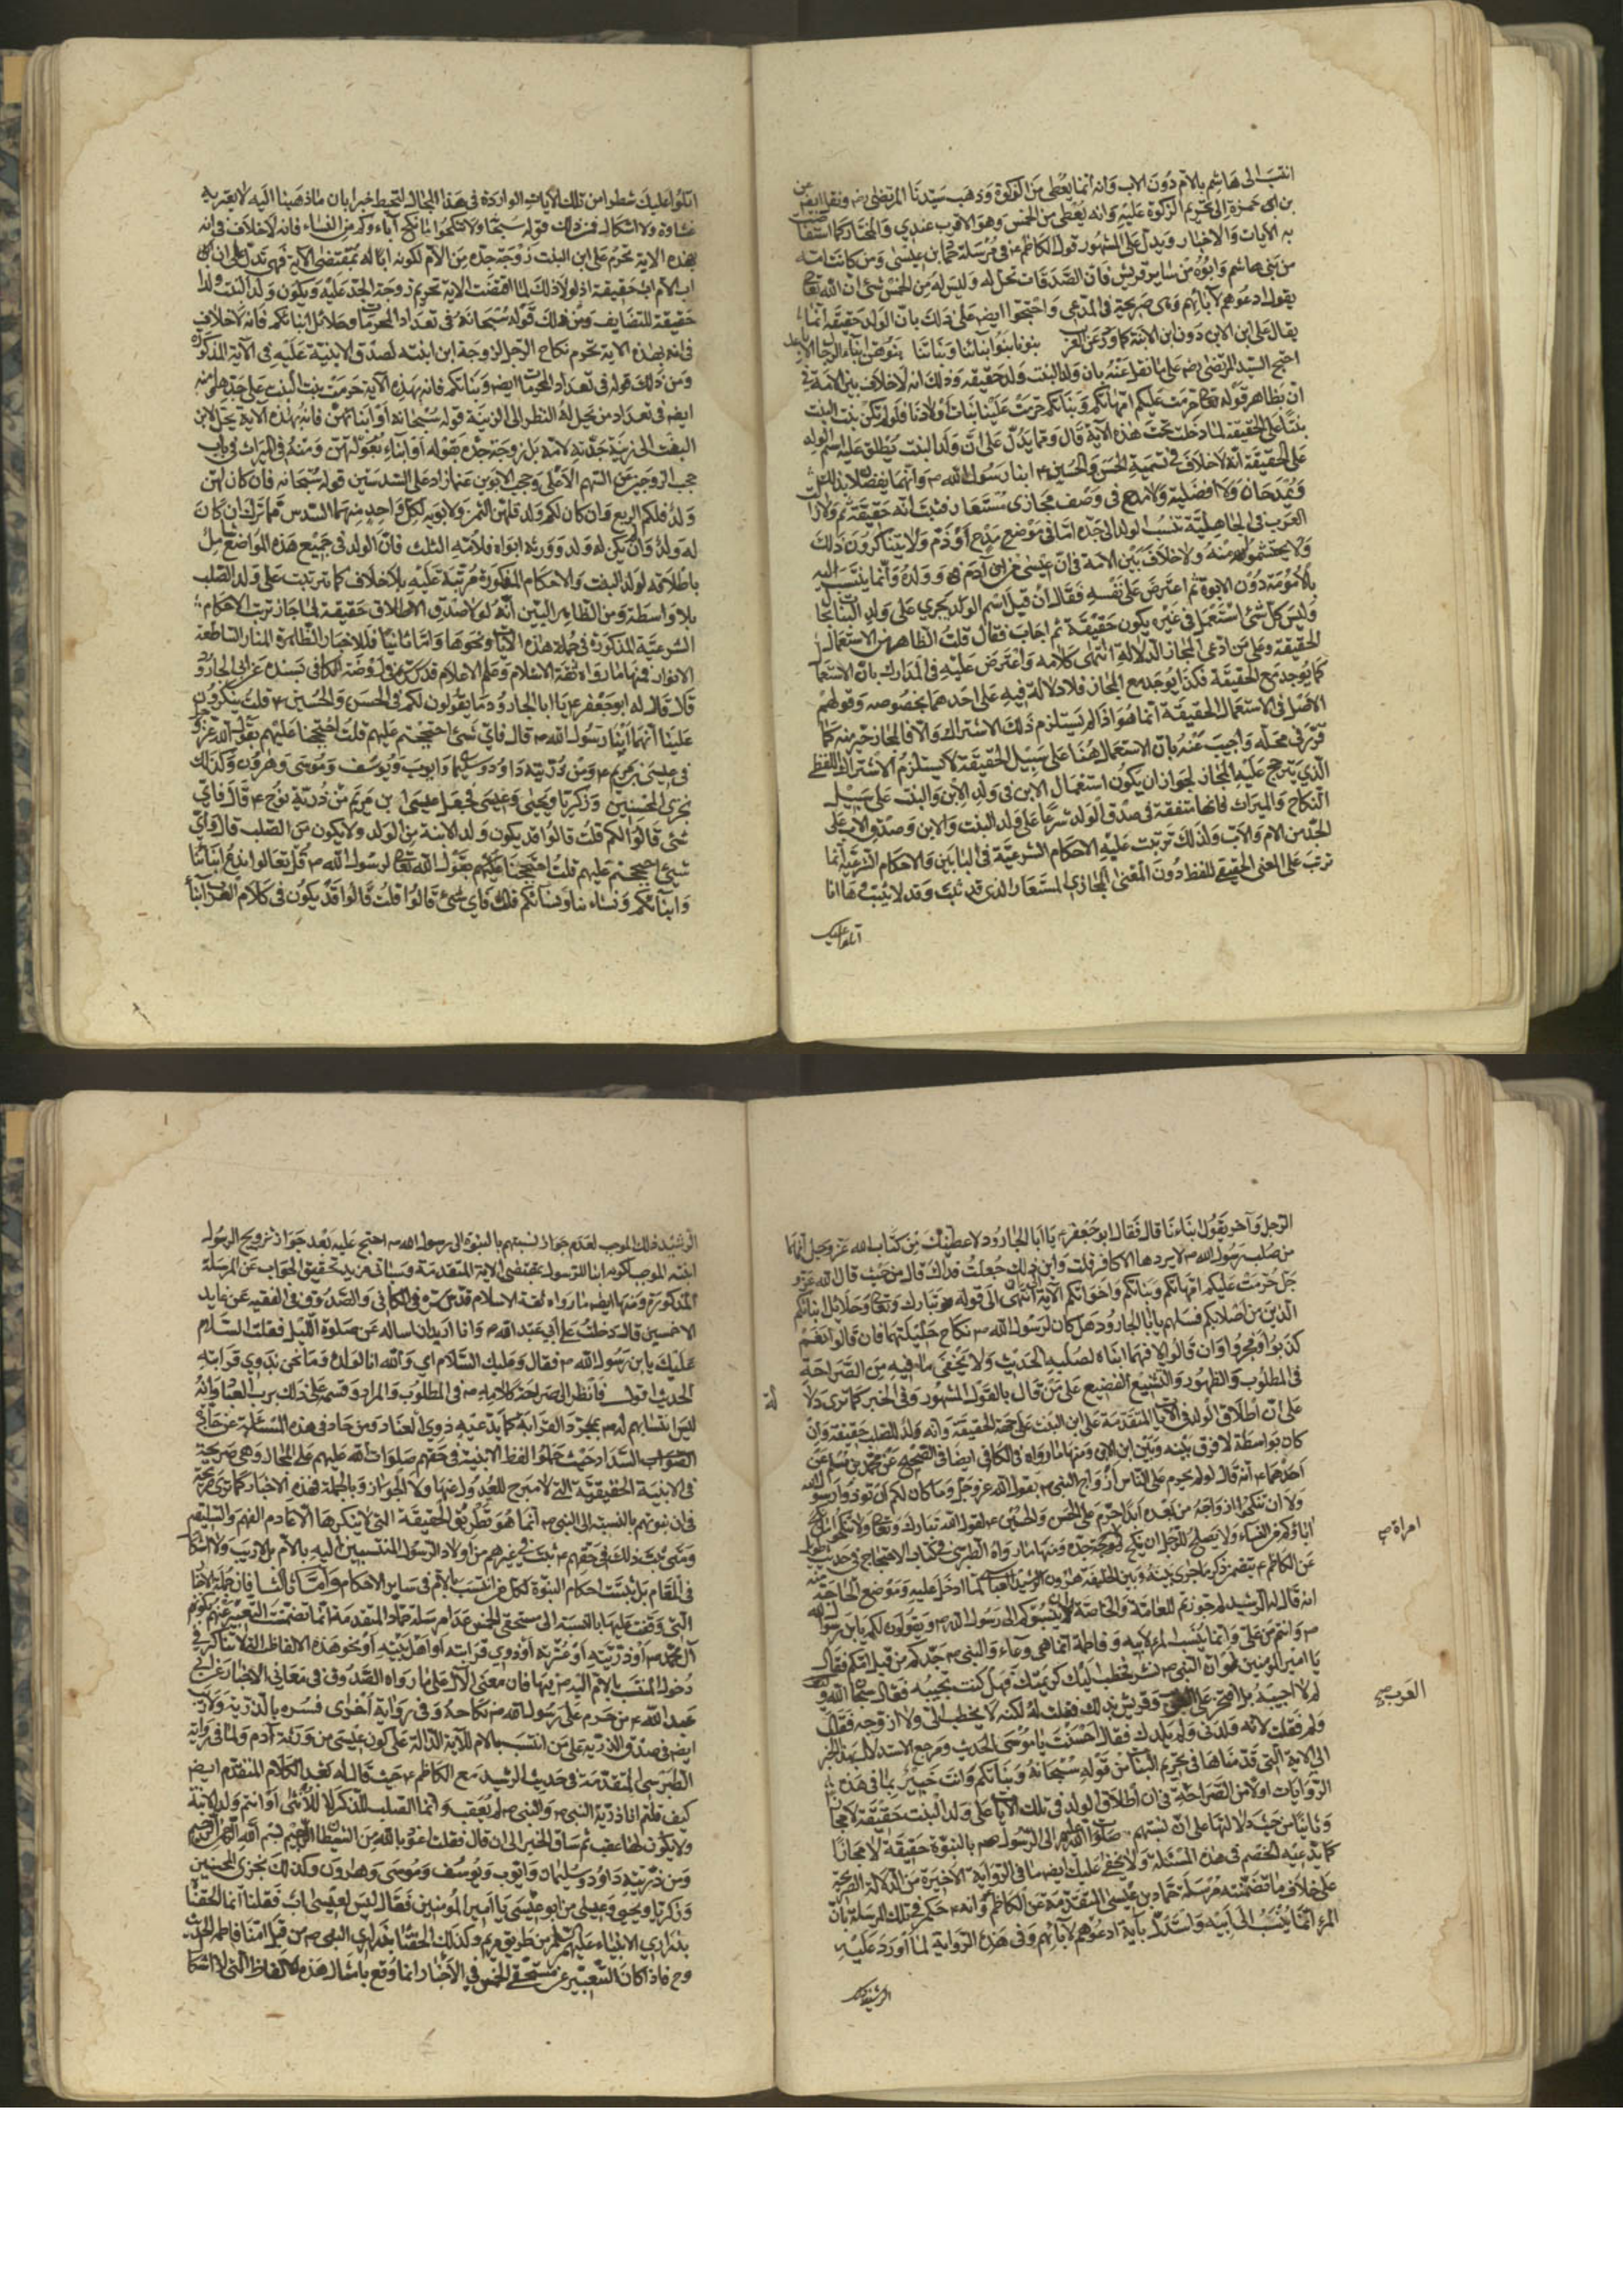 انتسب الى هاشم بالام دون الاب وانه انما يعطى من الزكوة وذهب سيدنا المرتضى رضه ونقل ايضا عن
بن ابى حمزة الى تحريم الزكوة عليه وانه يعطى من الخمس وهو الاقرب عندي والمختار كما استفاضت
به الايات والاخبار ويدل على المشهور قول الكاظم ع فى مرسلة حماد بن عيسى ومن كانت امه
من بنى هاشم وابوه من ساير قريش فان الصدقات تحل له وليس له من الخمس شئ ان الله تعالى
يقول ادعوهم لابائهم وهى صريحة فى المدعى واحتجوا ايضا على ذلك بان الولد حقيقة انما
يقال على ابن الابن دون ابن الابنة كما ورد عن العرب بنونا بنوا ابنائنا وبناتنا بنوهن ابناء الرجال الاباعد
احتج السيد المرتضى رضه على ما نقل عنه بان ولد البنت ولد حقيقة وذلك انه لا خلاف بين الامة فى
ان بظاهر قوله تعالى حرمت عليكم امهاتكم وبناتكم حرمت علينا بنات اولادنا فلو لم تكن بنت البنت
بنتا على الحقيقة لما دخلت تحت هذه الاية قال ومما يدل على ان ولد البنت يطلق عليه اسم الولد
على الحقيقة انه لا خلاف فى تسمية الحسن والحسين ع ابنا رسول الله ص وانهما يفضلان بذلك
ويمدحان ولا فضيلة ولا مدح فى وصف مجازى مستعار فثبت انه حقيقة ثم ولا زالت
العرب فى الجاهلية تنسب الولد الى جده اما فى موضع مدح او ذم ولا يتناكرون ذلك
ولا يحتشمون منه ولا خلاف بين الامة فى ان عيسى من بنى آدم وولده وانما ينتسب اليه
بالامومة دون الابوة ثم اعترض على نفسه فقال ان قيل اسم الولد يجري على ولد البنات مجازا
وليس كل شئ استعمل فى غيره يكون حقيقة ثم اجاب فقال قلت الظاهر من الاستعمال
الحقيقة وعلى من ادعى المجاز الدلالة انتهى كلامه واعترض عليه فى المدارك بان الاستعمال
كما يوجد مع الحقيقة فكذا يوجد مع المجاز فلا دلالة فيه على احدهما بخصوصه وقولهم
الاصل فى الاستعمال الحقيقة انما هو اذا لم يستلزم ذلك الاشتراك والا فالمجاز خير منه كما
قرر فى محله واجيب عنه بان الاستعمال هنا على سبيل الحقيقة لا يستلزم الاشتراك اللفظى
الذي يترجح عليه المجاز لجواز ان يكون استعمال الابن فى ولد الابن والبنت على سبيل
النكاح والميراث فانها متفقة فى صدق الولد شرعا على ولد البنت والابن وصدق الاب على
الجد من الام والاب ولذلك ترتبت عليه الاحكام الشرعية فى البابين والاحكام الشرعية انما
ترتب على المعنى الحقيقي للفظ دون المعنى المجازي المستعار الذى قد يثبت وقد لا يثبت وها انا
اتلو عليك
اتلوا عليك شطرا من تلك الايات الواردة فى هذا المجال لتحيط خبرا بان ما ذهبنا اليه لا يعتريه
غشاوة ولا اشكال فمن ذلك قوله سبحانه ولا تنكحوا ما نكح آباءوكم من النساء فانه لا خلاف فى انه
بهذه الاية تحرم على ابن البنت زوجة جده من الام لكونه ابا له بمقتضى الاية فهى تدل على ان
اب الام اب حقيقة اذ لولا ذلك لما اقتضت الاية تحريم زوجة الجد عليه ويكون ولد البنت ولدا
حقيقة للتضايف ومن ذلك قوله سبحانه فى تعداد المحرمات وحلائل ابنائكم فانه لا خلاف
فى انه بهذه الاية تحرم نكاح الرجل لزوجة ابن ابنته لصدق الابنية عليه فى الاية المذكورة
ومن ذلك قوله فى تعداد المحرمات ايضا وبناتكم فانه بهذه الاية حرمت بنت البنت على جدها ومنه
ايضا فى تعداد من يحل له النظر الى الزينة قوله سبحانه او ابنائهن فانه بهذه الاية يحل لابن
البنت الى زينة جدته لامه بل زوجة جده بقوله او ابناء بعولتهن ومنه فى الميراث فى باب
حجب الزوجين عن السهم الاعلى وحجب الابوين عما زاد على السدسين قوله سبحانه فان كان لهن
ولد فلكم الربع فان كان لكم ولد فلهن الثمن ولابويه لكل واحد منهما السدس مما ترك ان كان
له ولد وان لم يكن له ولد وورثه ابواه فلامه الثلث فان الولد فى جميع هذه المواضع شامل
باطلاقه لولد البنت والاحكام المذكورة مرتبة عليه بلا خلاف كما ترتبت على ولد الصلب
بلا واسطة ومن الظاهر البين انه لولا صدق الاطلاق حقيقة لما جاز ترتب الاحكام
الشرعية المذكورة فى جملة هذه الايات ونحوها واما ثانيا فللاخبار الظاهرة المنار الساطعة
الانوار فمنها ما رواه ثقة الاسلام وعلم الاعلام قدس سره فى روضة الكافى بسنده عن ابى الجارود
قال قال له ابو جعفر ع يا ابا الجارود ما تقولون لكم فى الحسن والحسين ع قلت ينكرون
علينا انهما ابنا رسول الله ص قال فاى شئ احتججتم عليهم قلت احتججنا عليهم بقول الله عز وجل
فى عيسى بن مريم ع ومن ذريته داود وسليمان وايوب ويوسف وموسى وهرون وكذلك
نجزى المحسنين وزكريا ويحيى وعيسى فجعل عيسى بن مريم من ذرية نوح ع قال فاى
شئ قالوا لكم قلت قالوا قد يكون ولد الابنة من الولد ولا يكون من الصلب قال واى
شيئ احتججتم عليهم قلت احتججنا عليهم بقول الله تعالى لرسول الله ص قل تعالوا ندع ابنائنا
وابنائكم ونساءنا ونسائكم قال فاى شئ قالوا قلت قالوا قد يكون فى كلام العرب ابناء
الرجل وآخر يقول ابناءنا قال فقال ابو جعفر ع يا ابا الجارود لاعطينك من كتاب الله عز وجل انهما
من صلب رسول الله ص لا يردها الا كافر قلت واين ذلك جعلت فداك قال من حيث قال الله عز و
جل حرمت عليكم امهاتكم وبناتكم واخواتكم الاية الى ان انتهى الى قوله تبارك وتعالى وحلائل ابنائكم
الذين من اصلابكم فسلهم يا ابا الجارود هل كان لرسول الله ص نكاح حليلتهما فان قالوا نعم
كذبوا وفجروا وان قالوا لا فهما ابناه لصلبه الحديث ولا يخفى ما فيه من الصراحة
فى المطلوب والظهور والتشنيع الفضيع على من قال بالقول المشهور وفى الخبر كما ترى دلالة
على ان اطلاق الولد فى الايات المتقدمة على ابن البنت على جهة الحقيقة وانه ولد للصلب حقيقة وان
كان بواسطة لا فرق بينه وبين ابن الابن ومنها ما رواه فى الكافى ايضا فى الصحيح عن محمد بن مسلم عن
احدهما ع انه قال لو لم يحرم على الناس ازواج النبى ص بقول الله عز وجل وما كان لكم ان تؤذوا رسول الله
ولا ان تنكحوا ازواجه من بعده ابدا حرم على الحسن والحسين ع لقول الله تبارك وتعالى ولا تنكحوا ما نكح
اباؤكم من النساء ولا يصلح للرجل ان ينكح زوجة جده ومنها ما رواه الطبرسى فى كتاب الاحتجاج فى حديث طويل
عن الكاظم ع يتضمن ذكر ما جرى بينه وبين الخليفة هرون الرشيد العباسى لما ادخل عليه وموضع الحاجة منه
انه قال له الرشيد لم جوزتم للعامة والخاصة ان ينسبوكم الى رسول الله ص ويقولون لكم يا بن رسول الله
ص وانتم من على وانما ينسب المرء لابيه وفاطمة انما هى وعاء والنبى ص جدكم من قبل امكم فقال
يا امير المؤمنين لو ان النبى ص نشر فخطب اليك كريمتك فهل كنت تجيبه فقال سبحان الله و
لم لا اجيبه بل افتخر على وقريش بذلك فقلت له لكنه لا يخطب الى ولا ازوجه فقال
ولم فقلت لانه ولدنى ولم يلدك فقال احسنت يا موسى الحديث ومرجع الاستدلال بهذا الخبر
الى الاية التى قدمناها فى تحريم البنات من قوله سبحانه وبناتكم وانت خبير بما فى هذه
الروايات اولا من الصراحة فى ان اطلاق الولد فى تلك الايات على ولد البنت حقيقة لا مجازا
وثانيا من حيث دلالتها على ان نسبتهم صلوات الله عليهم الى الرسول ص بالبنوة حقيقة لا مجازا
كما يدعيه الخصم فى هذه المسئلة ولا يخفى عليك ايضا ما فى الرواية الاخيرة من الدلالة الصريحة
على خلاف ما تضمنته مرسلة حماد بن عيسى المتقدمة عن الكاظم وانه ع حكم فى تلك المرسلة بان
المرء انما ينسب الى ابيه واستدل بآية ادعوهم لآبائهم وفى هذه الرواية لما اورد عليه
امراة صح
العرب صح
الرشيد ذلك
الرشيد ذلك الموجب لعدم جواز نسبتهم بالبنوة الى رسول الله ص احتج عليه بعد جواز تزويج الرسول
ابنته الموجب لكونه ابنا للرسول بمقتضى الاية المتقدمة وسياتى مزيد تحقيق الجواب عن المرسلة
المذكورة ومنها ايضا ما رواه ثقة الاسلام قدس سره فى الكافى والصدوق فى الفقيه عن عايد
الاحمسى قال دخلت على ابى عبد الله ع وانا اريد ان اساله عن صلوة الليل فقلت السلام
عليك يا بن رسول الله ص فقال وعليك السلام اي والله انا لولده وما نحن بذوي قرابته
الحديث اقول فانظر الى صراحة كلامه ع فى المطلوب والمراد وقسمه على ذلك برب العباد وانه
ليس انتسابهم له ص بمجرد القرابة كما يدعيه ذوي العناد ومن حاد فى هذه المسئلة عن جادة
الصواب السداد حيث حملوا لفظ الابنية فى حقهم صلوات الله عليهم على المجاز وهى صريحة
فى الابنية الحقيقية التى لا مبرح للعدول عنها ولا الجواز وبالجملة فهذه الاخبار كما ترى صريحة
فى ان بنوتهم بالنسبة الى النبى ص انما هو بطريق الحقيقة التى لا ينكرها الا عادم الفهم والسليقة
ومتى ثبت ذلك فى حقهم ع ثبت فى غيرهم من اولاد الرسول المنتسبين اليه بالام بلا ريب ولا اشكال
فى المقام بل ثبتت احكام البنوة لكل من انتسب بالام فى ساير الاحكام واما ثالثا فان جملة الاخبار
التى وقفت عليها بالنسبة الى مستحقي الخمس عدا مرسلة حماد المتقدمة انما تضمنت التعبير عنهم بكونهم
آل محمد ص او ذريته او عترته او ذوي قرابته او اهل بيته او نحو هذه الالفاظ التى لا تناكر فى
دخول المنتسب بالام اليه ص فيها فان معنى الآل على ما رواه الصدوق فى معانى الاخبار عن ابى
عبد الله ع من حرم على رسول الله ص نكاحه وفى رواية اخرى فسره بالذرية ولا ريب
ايضا فى صدق الذرية على من انتسب بالام للآية الدالة على كون عيسى من ذرية آدم ولما فى رواية
الطبرسى المتقدمة فى حديث الرشيد مع الكاظم ع حيث قال له بعد الكلام المتقدم ايضا
كيف قلتم انا ذرية النبى ص والنبى ص لم يعقب وانما العقب للذكر لا للانثى وانتم ولد الابنة
ولا يكون لها عقب ثم ساق الخبر الى ان قال فقلت اعوذ بالله من الشيطان الرجيم بسم الله الرحمن الرحيم
ومن ذريته داود وسليمان وايوب ويوسف وموسى وهارون وكذلك نجزى المحسنين
وزكريا ويحيى وعيسى من ابو عيسى يا امير المؤمنين فقال ليس لعيسى اب فقلنا انما الحقناه
بذراري الانبياء عليهم السلام من طريق مريم وكذلك الحقنا بذراري النبى ص من قبل امنا فاطمة الحديث
وح فاذا كان التعبير عن مستحقى الخمس فى الاخبار انما وقع بامثال هذه الالفاظ التى لا اشكال